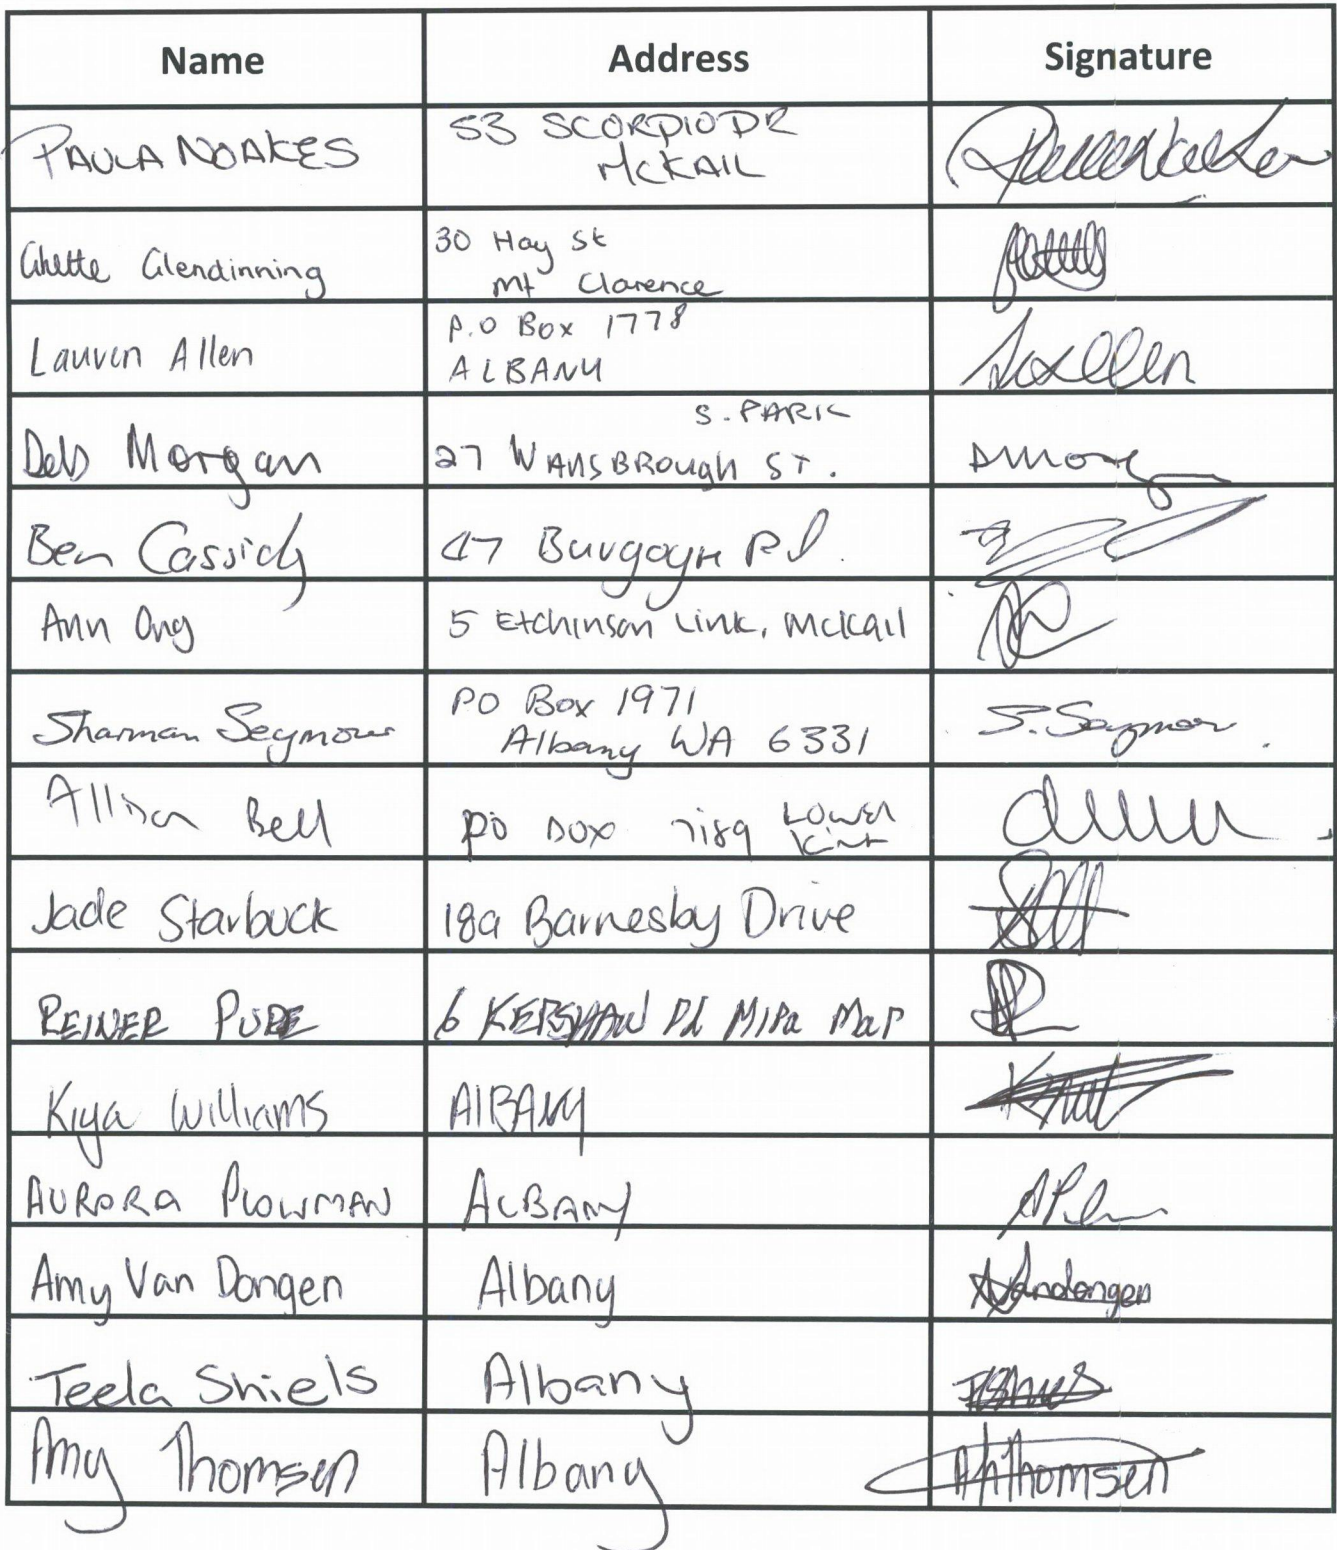 Name Address Signature
PAULA NOAKES 53 SCORPIO DR
MCKAIL
Glendinning 30 Hay St
Mt Clarence
Lauren Allen P.O Box 1778
ALBANY
S. PARK
Deb Morgan 27 WANSBROUGH ST. DMorg
Ben Cassidy 47 Burgoyne Rd.
Ann Ong 5 Etchinson Link, McKail
Sharman Seymour PO Box 1971 S. Seymour.
Albany WA 6331
Allison Bell PO BOX Lower
Jade Starbuck 18a Barnesby Drive
REINER PURE 6 KERSHAW Pl MIRa MaR
Kiya Williams AlBANY
AURORA PLOWMAN ALBANY
Amy Van Dongen Albany AVandongen
Teela Shiels Albany
Amy Thomsen Albany AhThomsen